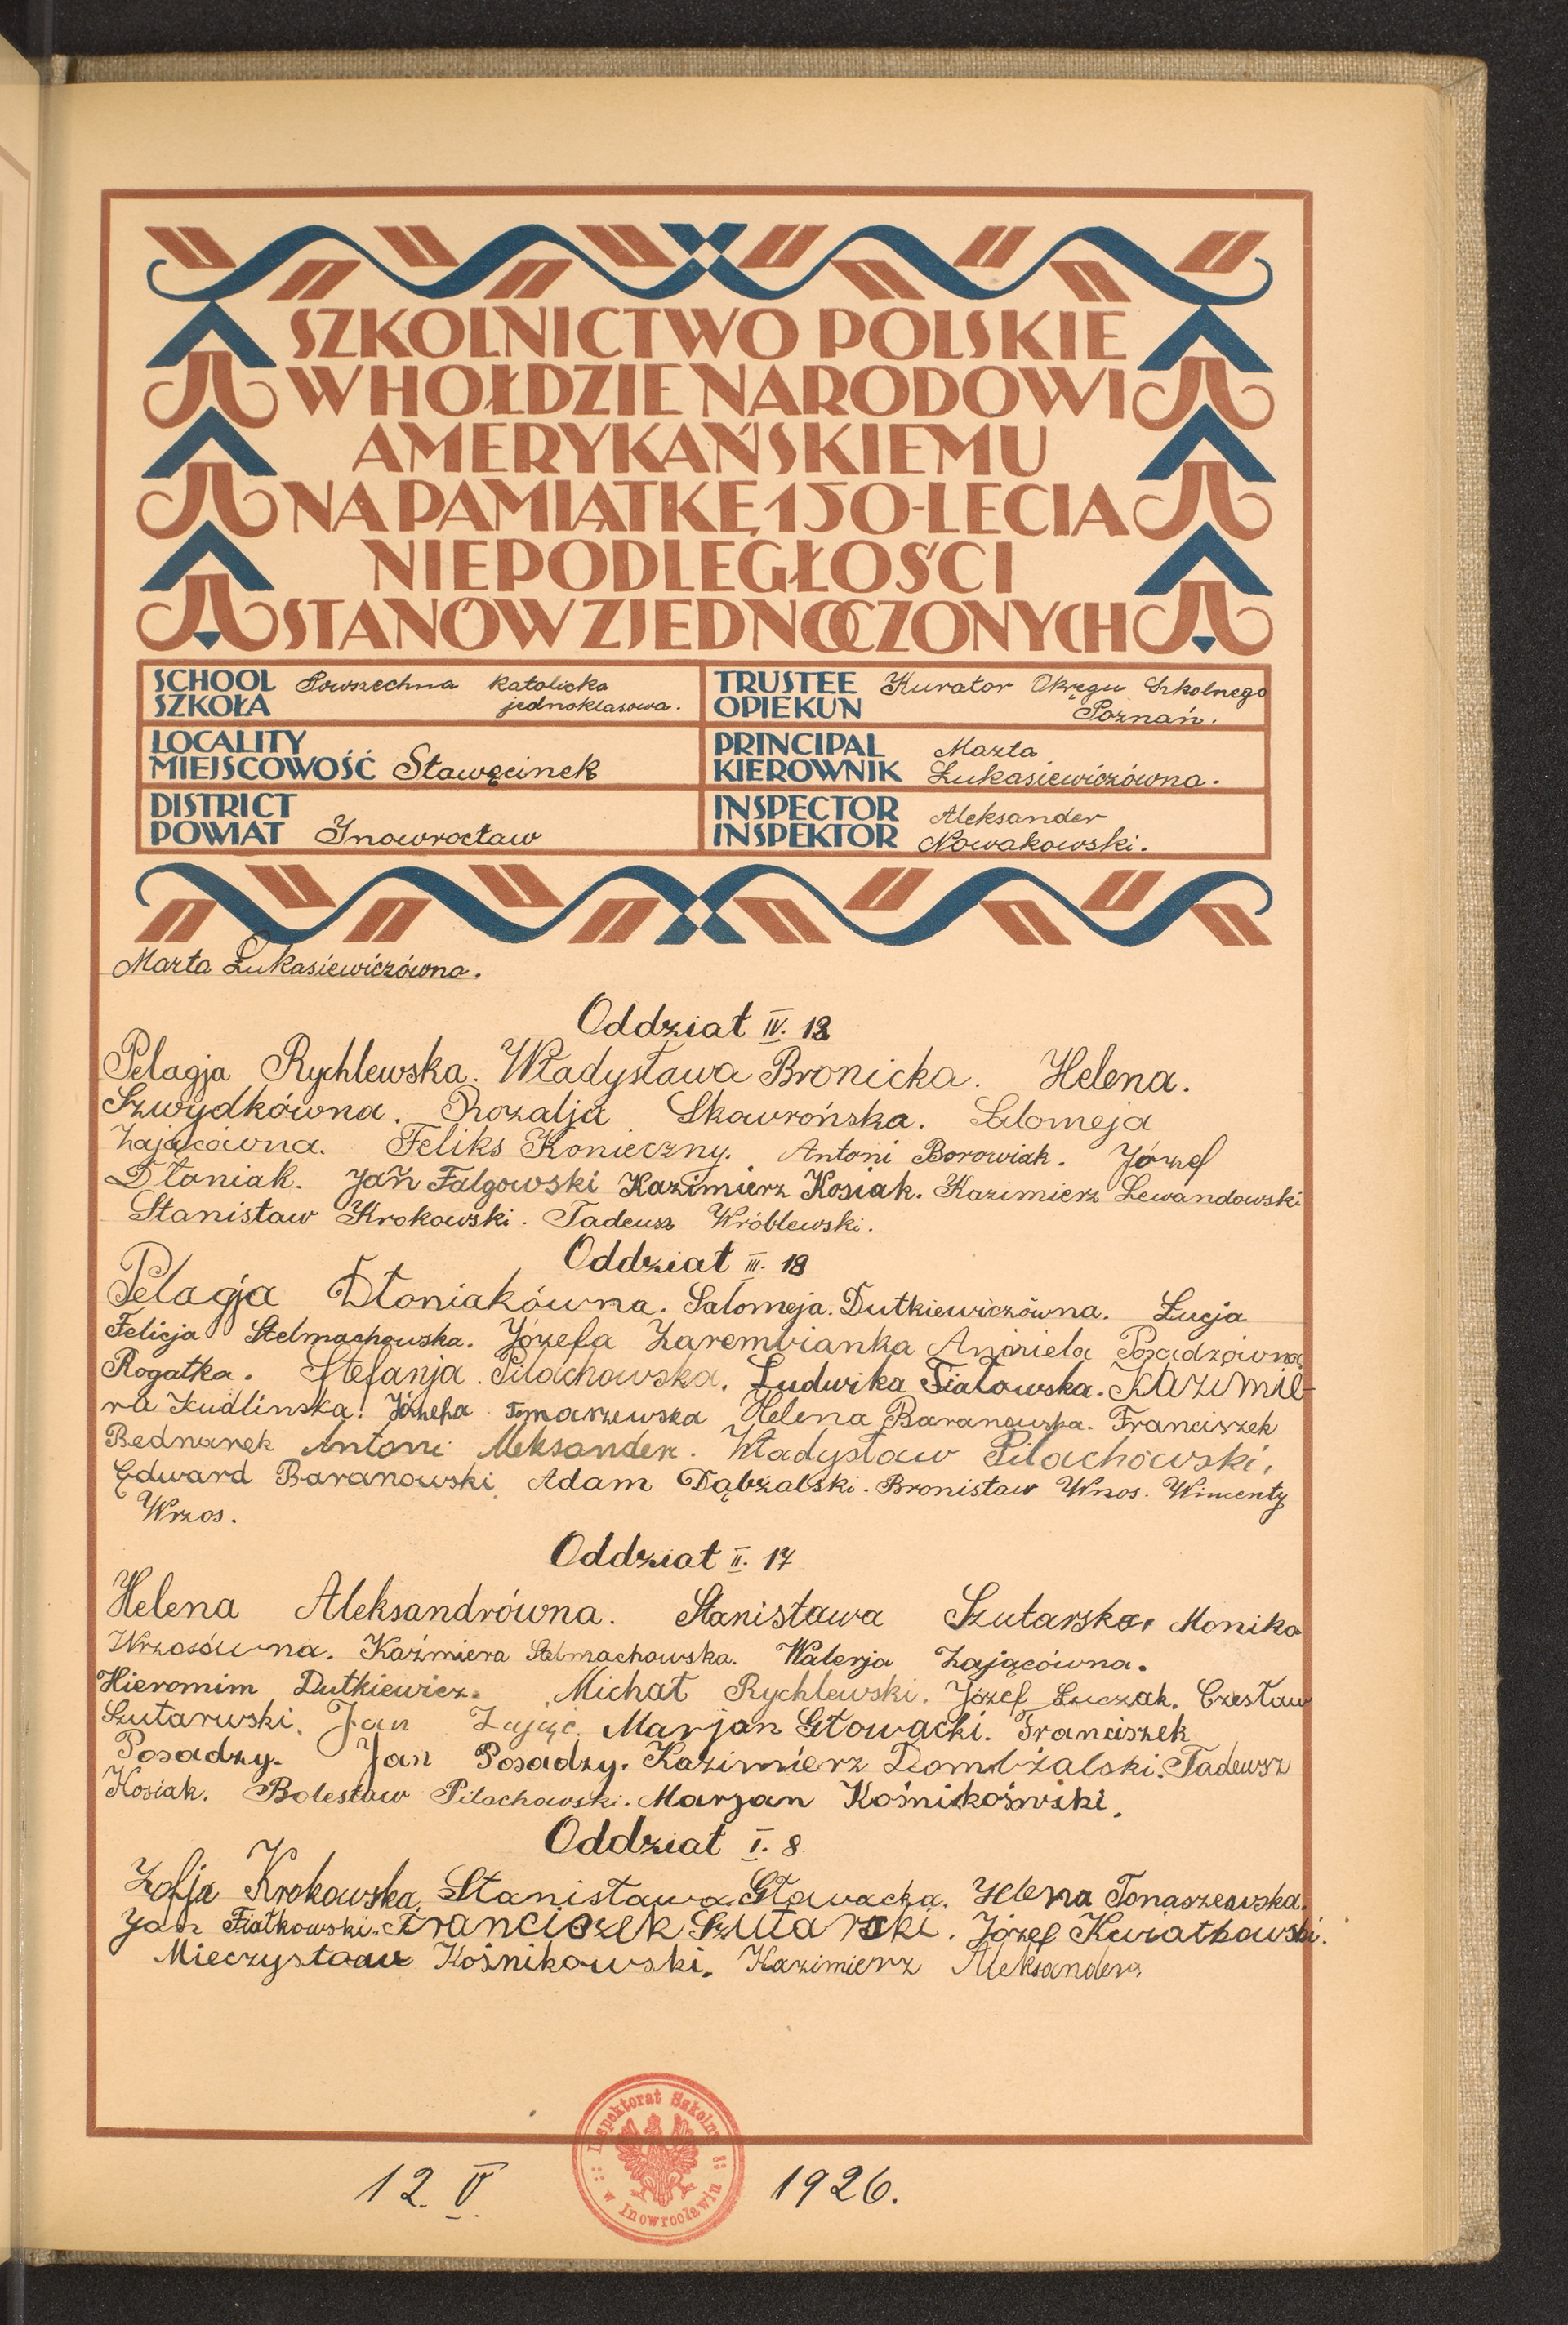 SZKOLNICTWO POLSKIE
W HOŁDZIE NARODOWI
AMERYKAŃSKIEMU
NA PAMIĄTKĘ 150-LECIA
NIEPODLEGŁOŚCI
STANÓW ZJEDNOCZONYCH
SCHOOL
SZKOŁA
Powszechna katolicka
jednoklasowa.
TRUSTEE
OPIEKUN
Kurator Okręgu Szkolnego
Poznań.
LOCALITY
MIEJSCOWOŚĆ Sławęcinek
PRINCIPAL
KIEROWNIK
Marta
Łukasiewiczówna.
DISTRICT
POWIAT Inowrocław
INSPECTOR
INSPEKTOR
Aleksander
Nowakowski.
Marta Łukasiewiczówna.
Oddział IV. 13
Pelagja Rychlewska. Władysława Bronicka. Helena.
Szwydkówna. Rozalja Skawrońska. Salomeja
Zającówna. Feliks Konieczny. Antoni Borowiak. Józef
Dłoniak. Jan Falgowski Kazimierz Kosiak. Kazimierz Lewandowski
Stanisław Krokowski. Tadeusz Wróblewski.
Oddział III. 18
Pelagja Dłoniakówna. Salomeja. Dutkiewiczówna. Łucja
Felicja Stelmachowska. Józefa Zarembianka Aniela Posadzówna
Rogatka. Stefanja. Pilachowska. Ludwika Fiałowska. Kazimie-
ra Kudlinska. Józefa Tomaszewska Helena Baranowska. Franciszek
Bednarek Antoni Aleksander. Władysław Pilachowski,
Edward Baranowski Adam Dąbżalski. Bronisław Wrzos. Wincenty
Wrzos.
Oddział II. 17
Helena Aleksandrówna. Stanisława Szutarska, Monika
Wrzosówna. Kaźmiera Stelmachowska. Walerja Zającówna.
Hieronim Dutkiewicz. Michał Rychlewski. Józef Łuczak. Czesław
Szutarwski. Jan Zając. Marjan Głowacki. Franciszek
Posadzy. Jan Posadzy. Kazimierz Dombżalski. Tadeusz
Kosiak. Bolesław Pilachowski. Marjan Kośnikośwski.
Oddział I. 8.
Zofja Krokowska, Stanisława Głowacka. Helena Tomaszewska.
Jan Fiałkowski. Franciszek Szutarski. Józef Kwiatkowski.
Mieczysław Kośnikowski. Kazimierz Aleksander.
Inspektorat Szkolny
w Inowrocławiu
12. V. 1926.